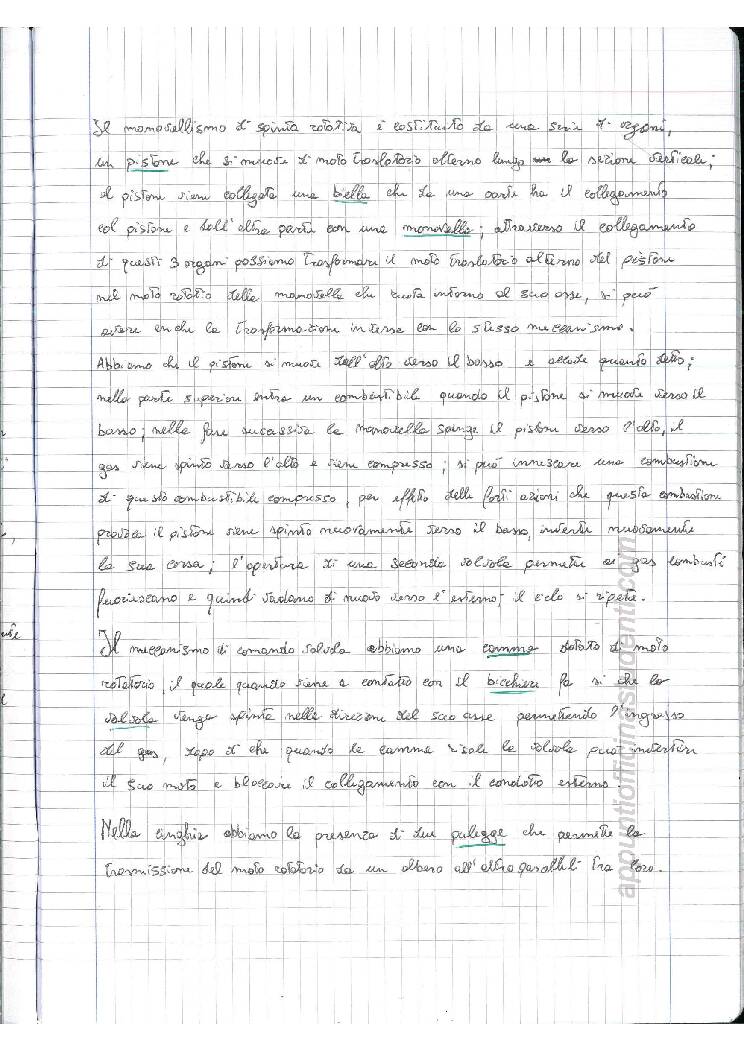 Il manovellismo di spinta rotativa è costituito da una serie di organi,
un pistone che si muove di moto traslatorio alterno lungo la sezione verticale;
al pistone viene collegata una biella che da una parte ha il collegamento
col pistone e dall'altra parte con una manovella; attraverso il collegamento
di questi 3 organi possiamo trasformare il moto traslatorio alterno del pistone
nel moto rotatorio della manovella che ruota intorno al suo asse, si può
avere anche la trasformazione inversa con lo stesso meccanismo.
Abbiamo che il pistone si muove dall'alto verso il basso e accade quanto detto;
nella parte superiore entra un combustibile quando il pistone si muove verso il
basso; nella fase successiva la manovella spinge il pistone verso l'alto, il
gas viene spinto verso l'alto e viene compresso; si può innescare una combustione
di questo combustibile compresso, per effetto delle forti azioni che questa combustione
provoca il pistone viene spinto nuovamente verso il basso, inverte nuovamente
la sua corsa; l'apertura di una seconda valvola permette ai gas combusti
fuoriescano e quindi vadano di nuovo verso l'esterno; il ciclo si ripete.
Il meccanismo di comando valvola abbiamo una camma dotato di moto
rotatorio, il quale quando viene a contatto con il bicchiere fa si che la
valvola venga spinta nella direzione del suo asse permettendo l'ingresso
del gas, dopo di che quando la camma risale la valvola può invertire
il suo moto e bloccare il collegamento con il condotto esterno.
Nella cinghia abbiamo la presenza di due pulegge che permette la
trasmissione del moto rotatorio da un albero all'altro paralleli tra loro.
appuntiofficinastudenti.com